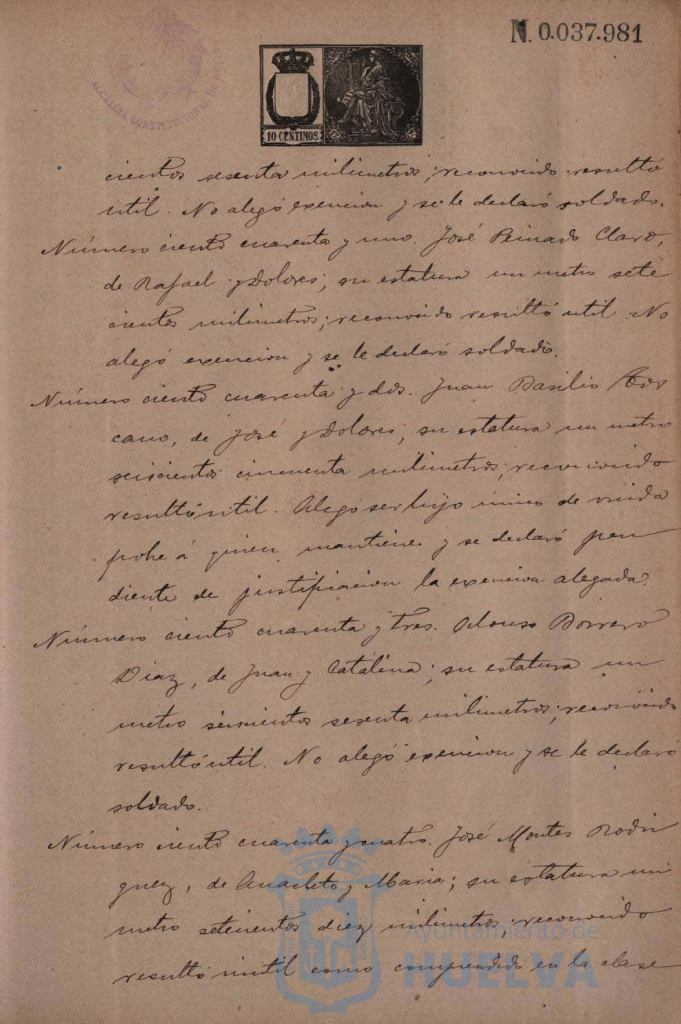 N. 0.037.981
ALCALDIA CONSTITUCIONAL DE
10 CENTIMOS
cientos sesenta milimetros; reconocido resultó
util. No alegó exencion y se le declaró soldado.
Número ciento cuarenta y uno. José Peinado Claro,
de Rafael y Dolores; su estatura un metro sete
cientos milimetros; reconocido resultó util. No
alegó exencion y se le declaró soldado.
Número ciento cuarenta y dos. Juan Basilio
cano, de José y Dolores; su estatura un metro
seiscientos cincuenta milimetros; reconocido
resultó util. Alegó ser hijo único de viuda
pobre á quien mantiene y se declaró pen
diente de justificacion la exencion alegada.
Número ciento cuarenta y tres. Alonso Borrero
Diaz, de Juan y Catalina; su estatura un
metro seiscientos sesenta milimetros; reconocido
resultó util. No alegó exencion y se le declaró
soldado.
Número ciento cuarenta y cuatro. José Montes Rodri
guez, de Anacleto y Maria; su estatura un
metro setecientos diez milimetros; reconocido
resultó inutil como comprendido en la clase
Ayuntamiento de
HUELVA